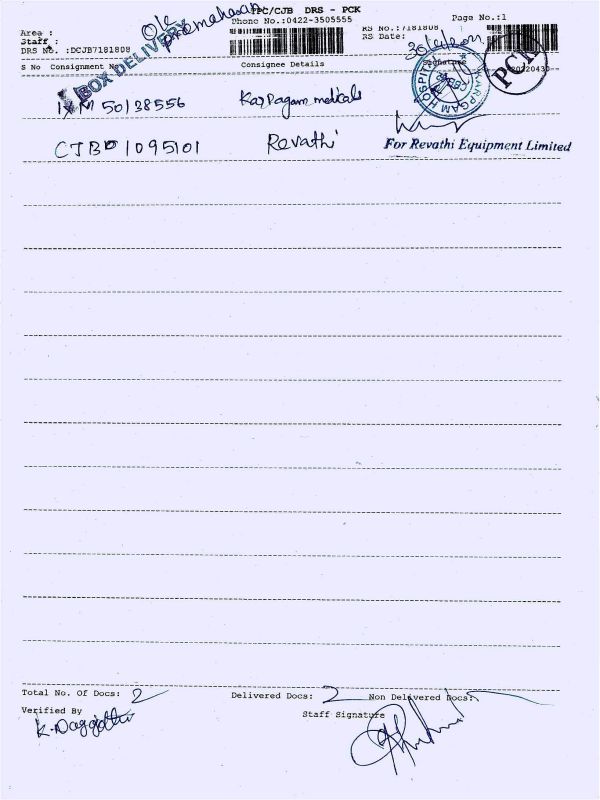 PC/CJB DRS - PCK
Phone No.:0422-3505555
Page No.:1
Area :
Staff :
DRS No. :DCJB7181808
RS No.:7181808
RS Date:
BOX DELIVERY
S No Consignment No
Consignee Details
Signature
PCK
KARPAGAM HOSPITAL
50138556
Karpagam medicals
1095101
Revathi
For Revathi Equipment Limited
Total No. Of Docs: 2
Delivered Docs: 2
Non Delivered Docs:
Verified By
Staff Signature